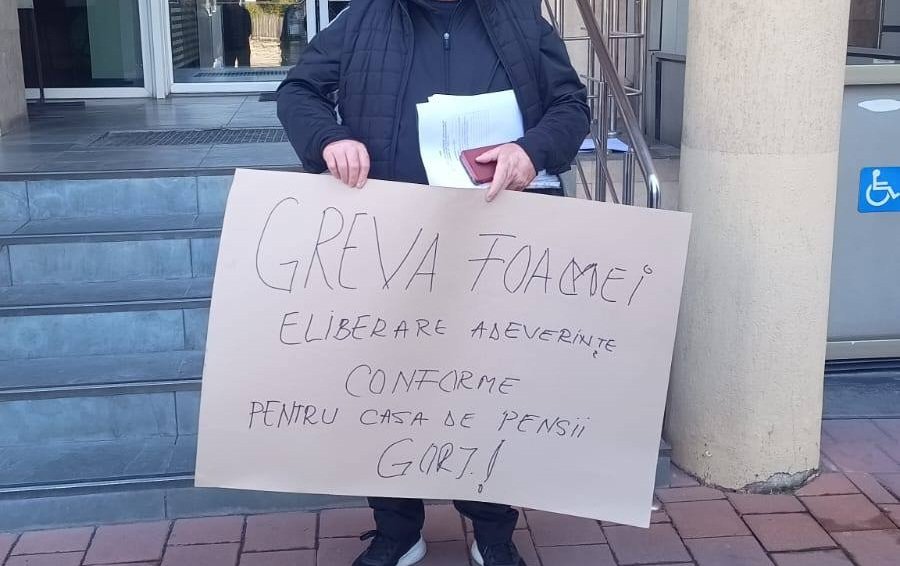 GREVA FOAMEI
ELIBERARE ADEVERINȚE
CONFORME
PENTRU CASA DE PENSII
GORJ!